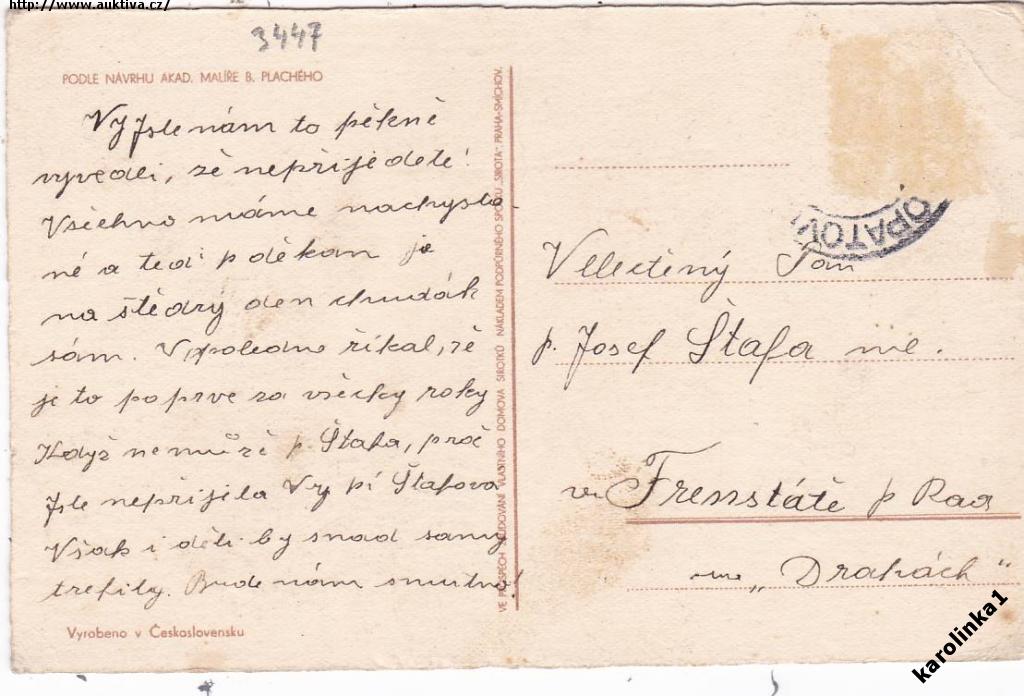 http://www.auktiva.cz/
3447
PODLE NÁVRHU AKAD. MALÍŘE B. PLACHÉHO
Vy jste nám to pěkně
vyvedli, že nepřijedete!
Všechno máme nachysta-
né a teď p děkan je
na štědrý den chudák
sám. V poledne říkal, že
je to poprve za všecky roky
Když nemůže p. Štafa, proč
jste nepřijela Vy pí Štafova
Však i děti by snad samy
trefily. Bude nám smutno!
Vyrobeno v Československu
VE PROSPĚCH VLASTNÍHO DOMOVA SIROTKŮ NÁKLADEM PODPŮRNÉHO SPOLKU „SIROTA" PRAHA-SMÍCHOV.
OPATOV
Velectěný Pan
p. Josef Štafa
ve Frenštátě p Rad
na „Drahách"
karolinka1